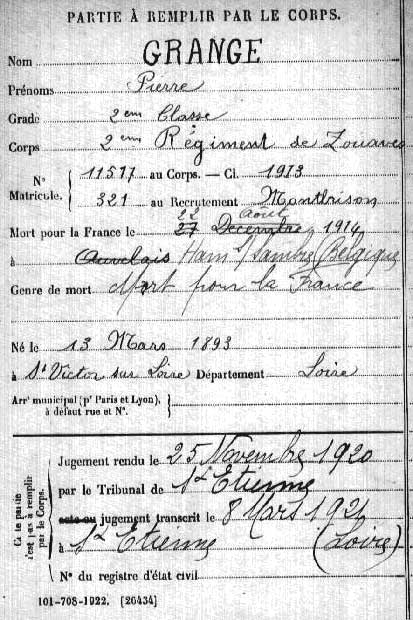 PARTIE À REMPLIR PAR LE CORPS.
Nom GRANGE
Prénoms Pierre
Grade 2eme Classe
Corps 2eme Régiment de Zouaves
N° Matricule. 11577 au Corps. — Cl. 1913
321 au Recrutement Montbrison
22 Août
Mort pour la France le 27 Decembre 1914
à Auvelais Ham s/Sambre (Belgique)
Genre de mort Mort pour la France
Né le 13 Mars 1893
à St Victor sur Loire Département Loire
Arrt municipal (pr Paris et Lyon), à défaut rue et N°.
Cette partie n'est pas à remplir par le Corps.
Jugement rendu le 25 Novembre 1920
par le Tribunal de St Etienne
acte ou jugement transcrit le 8 Mars 1921
à St Etienne (Loire)
N° du registre d'état civil
101-708-1922. [26434]